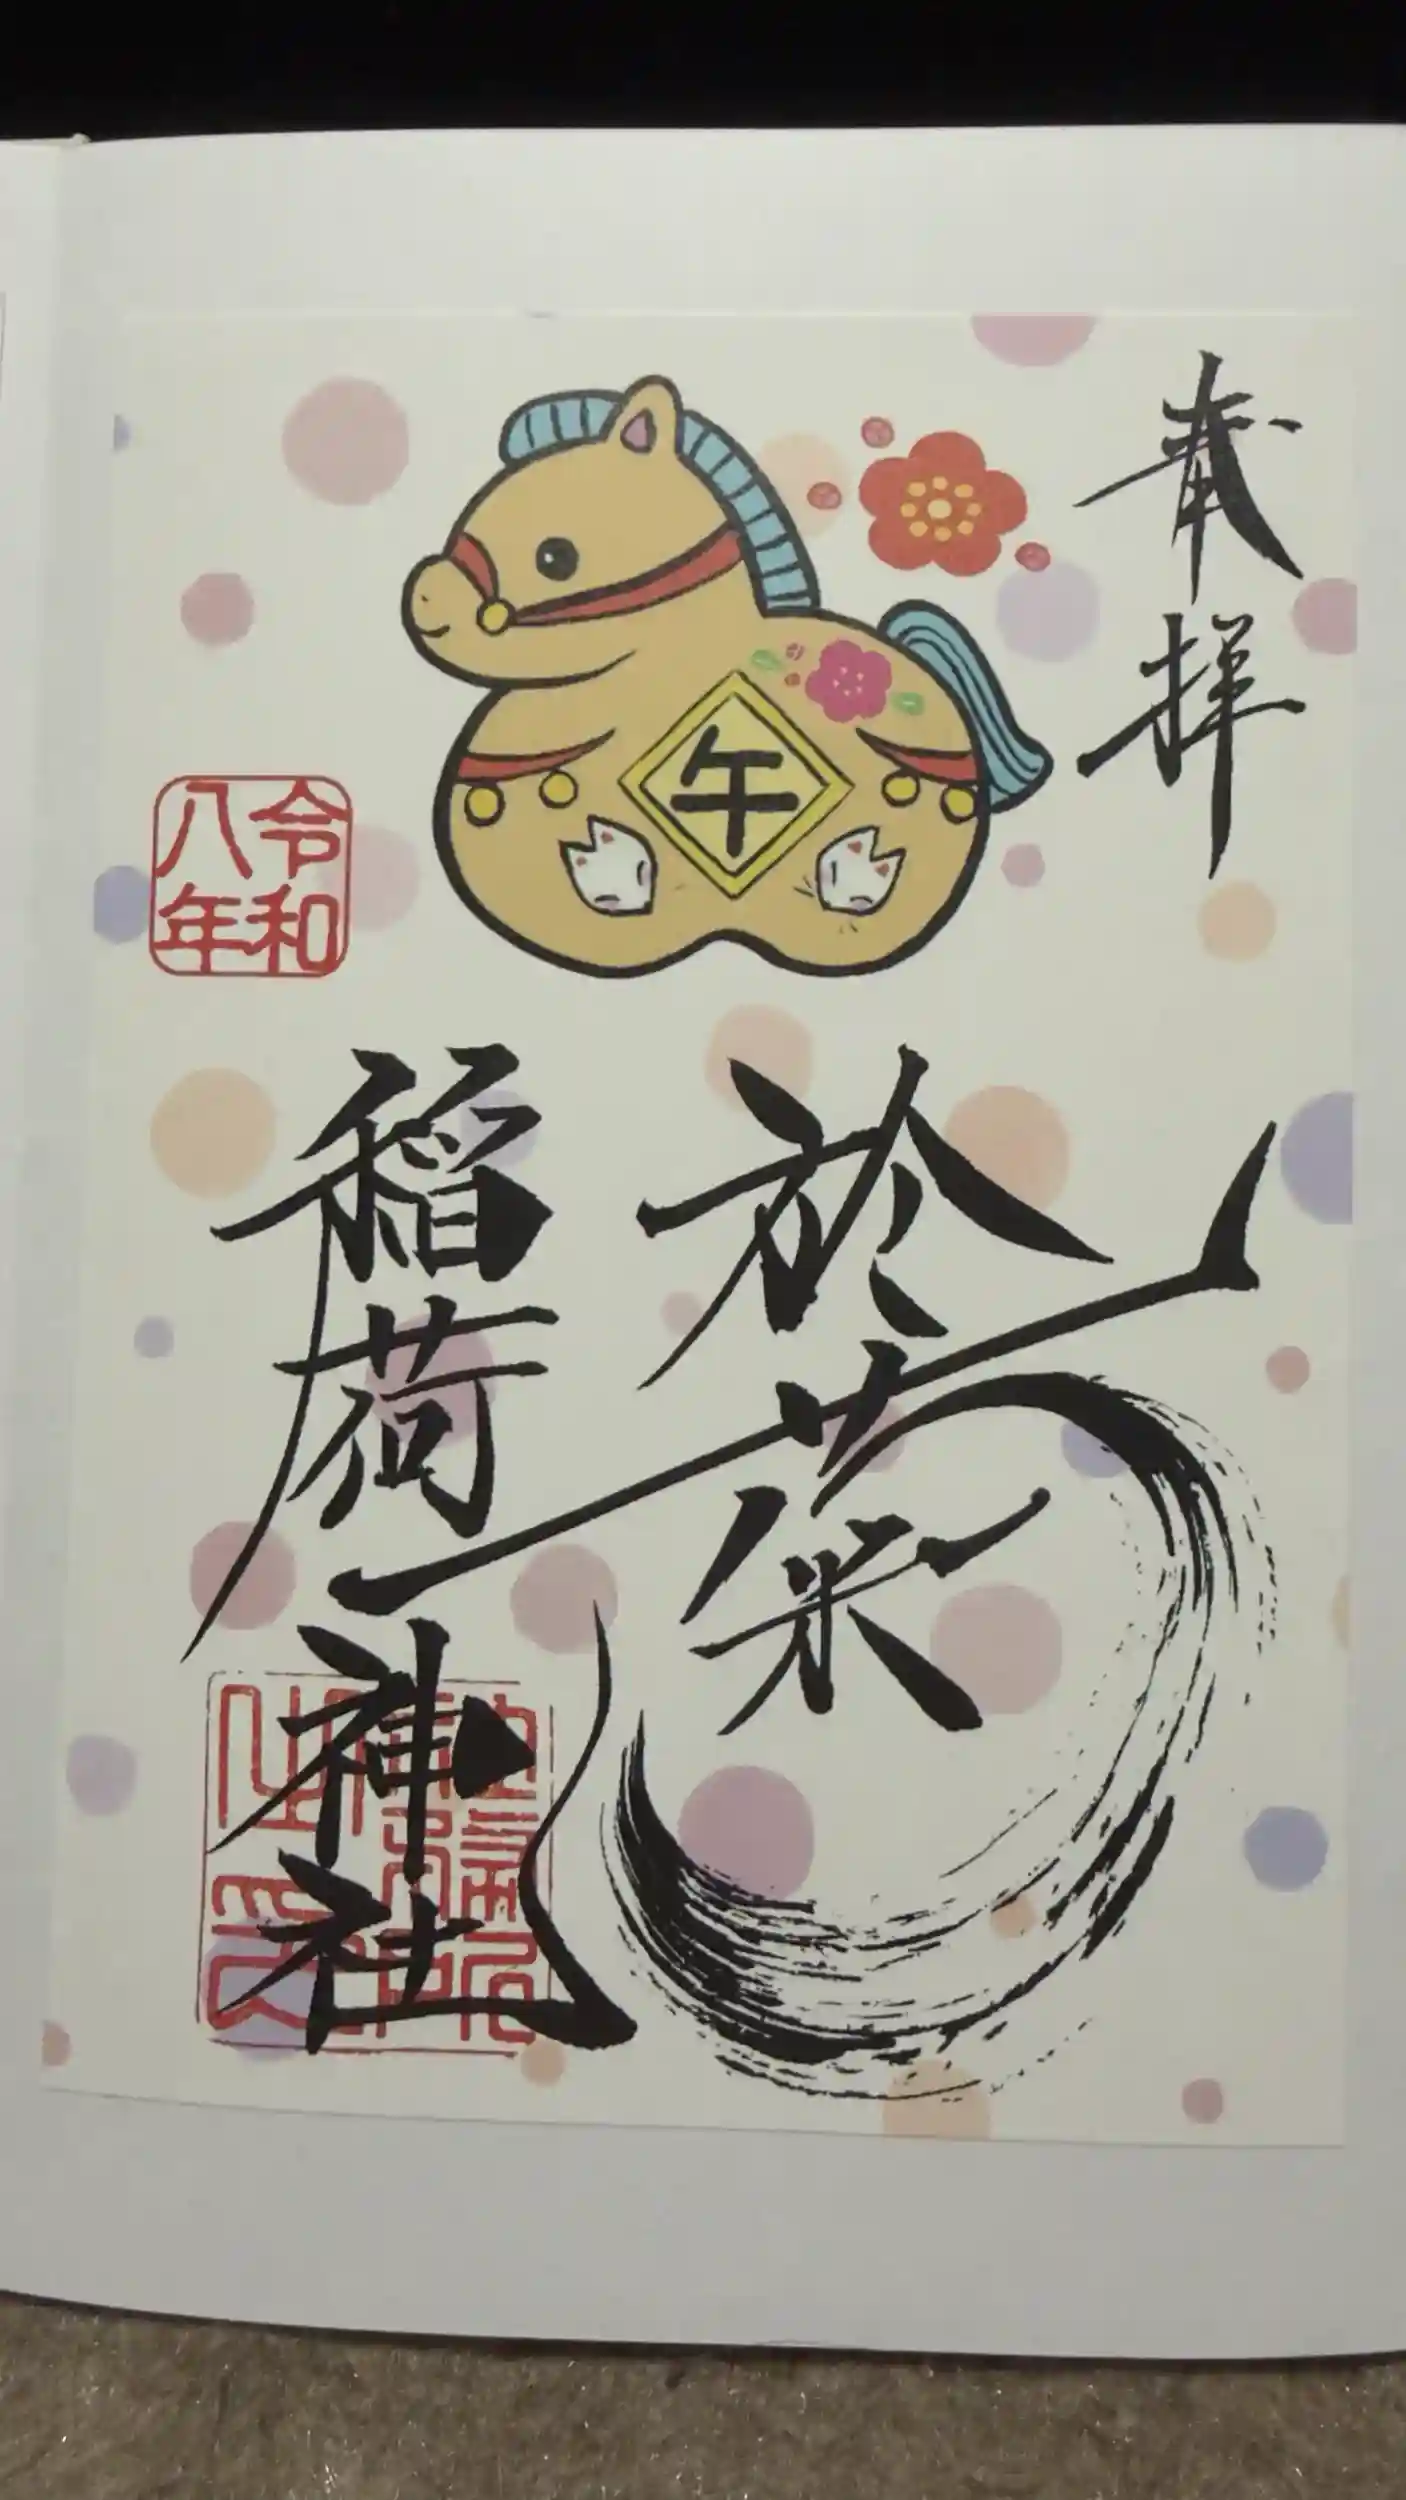 奉拝
午
令和
八年
於菊
稲荷
神社